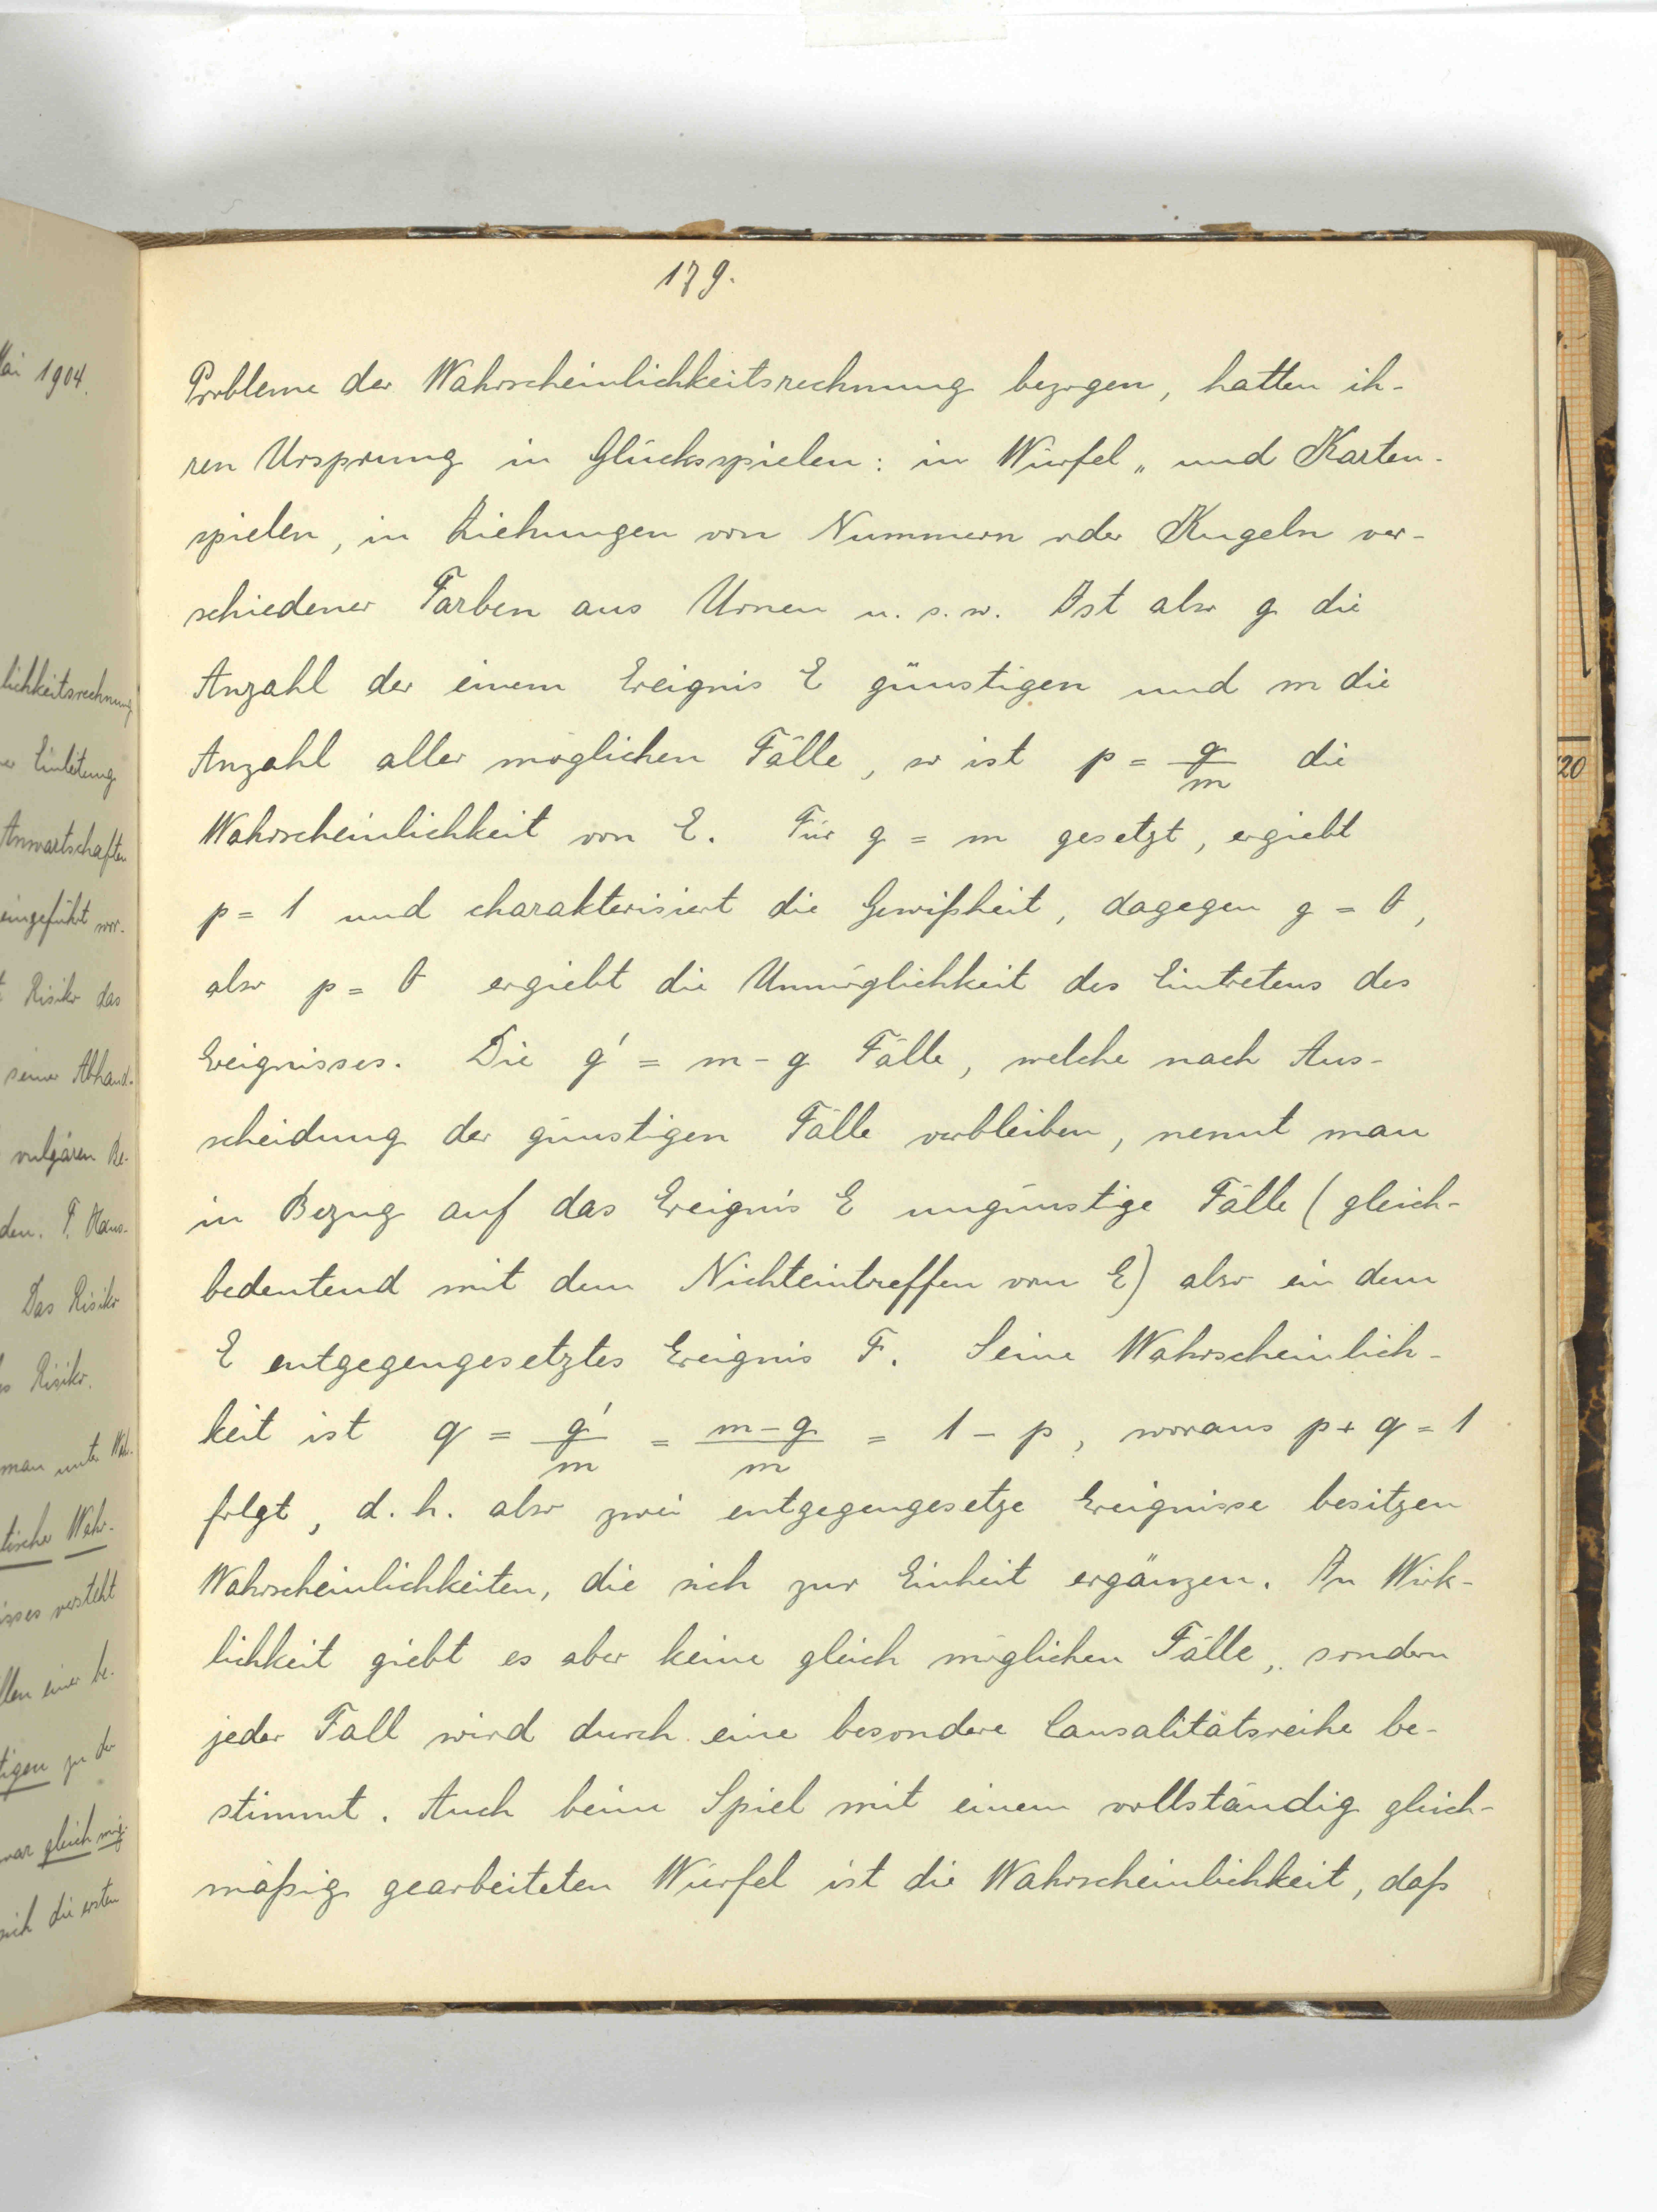 Mai 1904.
lichkeitsrechnung
Einleitung
Anwartschaften
eingeführt wor-
Risiko das
seiner Abhand-
vulgären Be-
den. F. Haus-
Das Risiko
Risiko.
man unter Wah-
tische Wahr-
isses versteht
llen einer be-
tigen zu der
war gleich mög-
sich die ersten
179.
Probleme der Wahrscheinlichkeitsrechnung bezogen, hatten ih-
ren Ursprung in Glücksspielen: in Würfel „ und Karten-
spielen, in Ziehungen von Nummern oder Kugeln ver-
schiedener Farben aus Urnen u. s. w. Ist also g die
Anzahl der einem Ereignis E günstigen und m die
Anzahl aller möglichen Fälle, so ist p = g/m die
Wahrscheinlichkeit von E. Für g = m gesetzt, ergiebt
p = 1 und charakterisiert die Gewißheit, dagegen g = 0,
also p = 0 ergiebt die Unmöglichkeit des Eintretens des
Ereignisses. Die g' = m - g Fälle, welche nach Aus-
scheidung der günstigen Fälle verbleiben, nennt man
in Bezug auf das Ereignis E ungünstige Fälle (gleich-
bedeutend mit dem Nichteintreffen von E) also ein dem
E entgegengesetztes Ereignis F. Seine Wahrscheinlich-
keit ist q = g'/m = (m-g)/m = 1 - p, woraus p + q = 1
folgt, d. h. also zwei entgegengesetze Ereignisse besitzen
Wahrscheinlichkeiten, die sich zur Einheit ergänzen. In Wirk-
lichkeit giebt es aber keine gleich möglichen Fälle, sondern
jeder Fall wird durch eine besondere Causalitätsreihe be-
stimmt. Auch beim Spiel mit einem vollständig gleich-
mäßig gearbeiteten Würfel ist die Wahrscheinlichkeit, daß
20